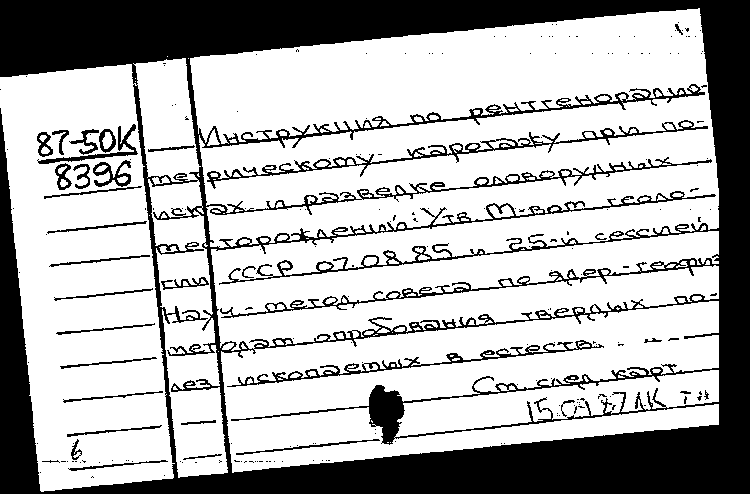 1.
87-50К
8396
Инструкция по рентгенорадио-
метрическому каротажу при по-
исках и разведке оловорудных
месторождений: Утв. М-вом геоло-
гии СССР 07.08.85 и 25-й сессией
Науч.-метод. совета по ядер.-геофиз
методам опробования твердых по-
лез ископаемых в естеств.
См. след. карт.
15.09.87 ЛК
6